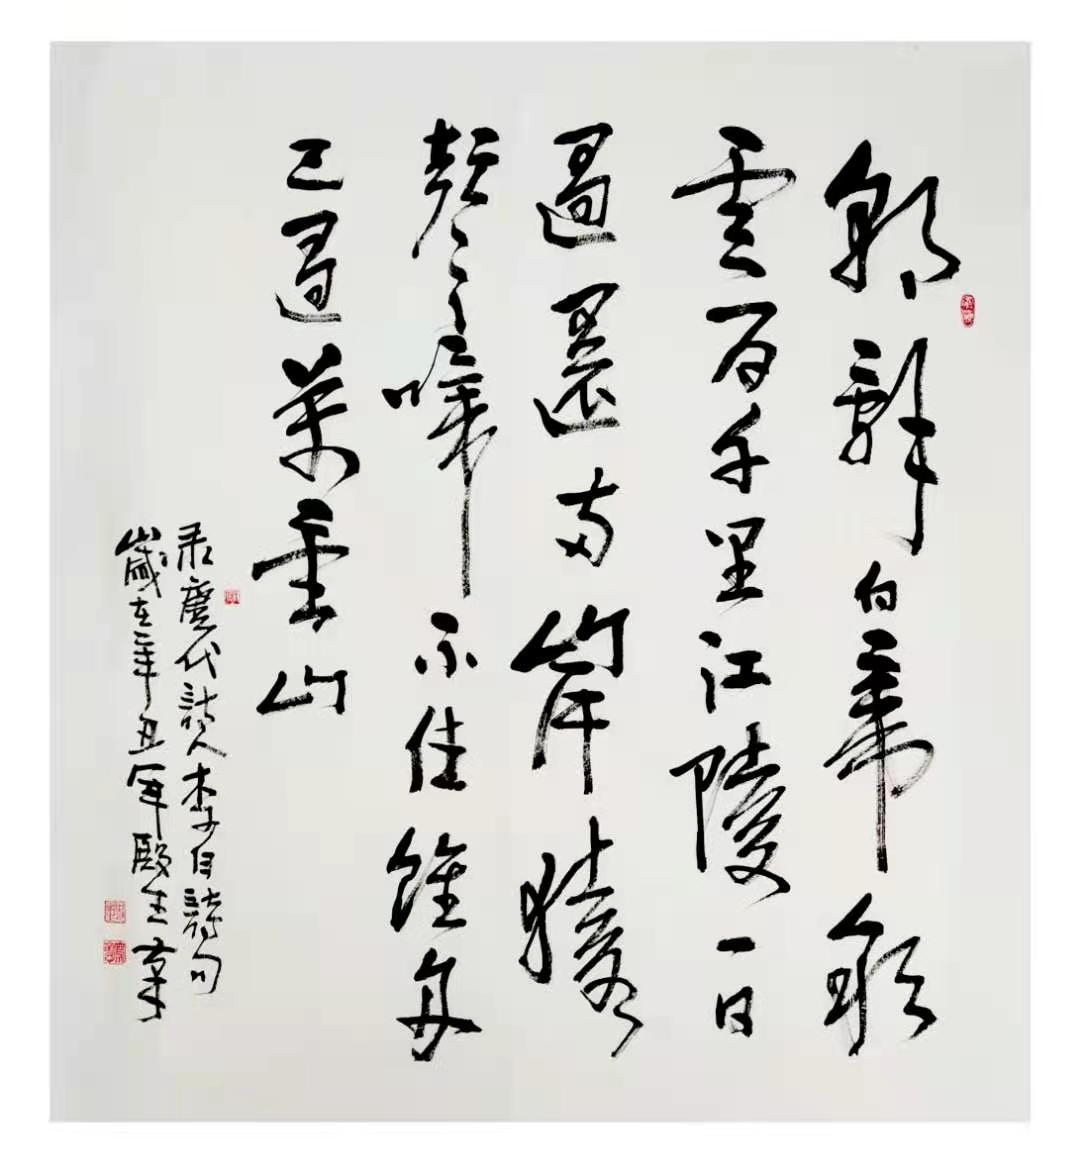 朝辭白帝彩
雲間千里江陵一日
過還兩岸猿
聲啼不住輕舟
已過萬重山
录唐代詩人李白詩句
歲在辛丑年殿生草